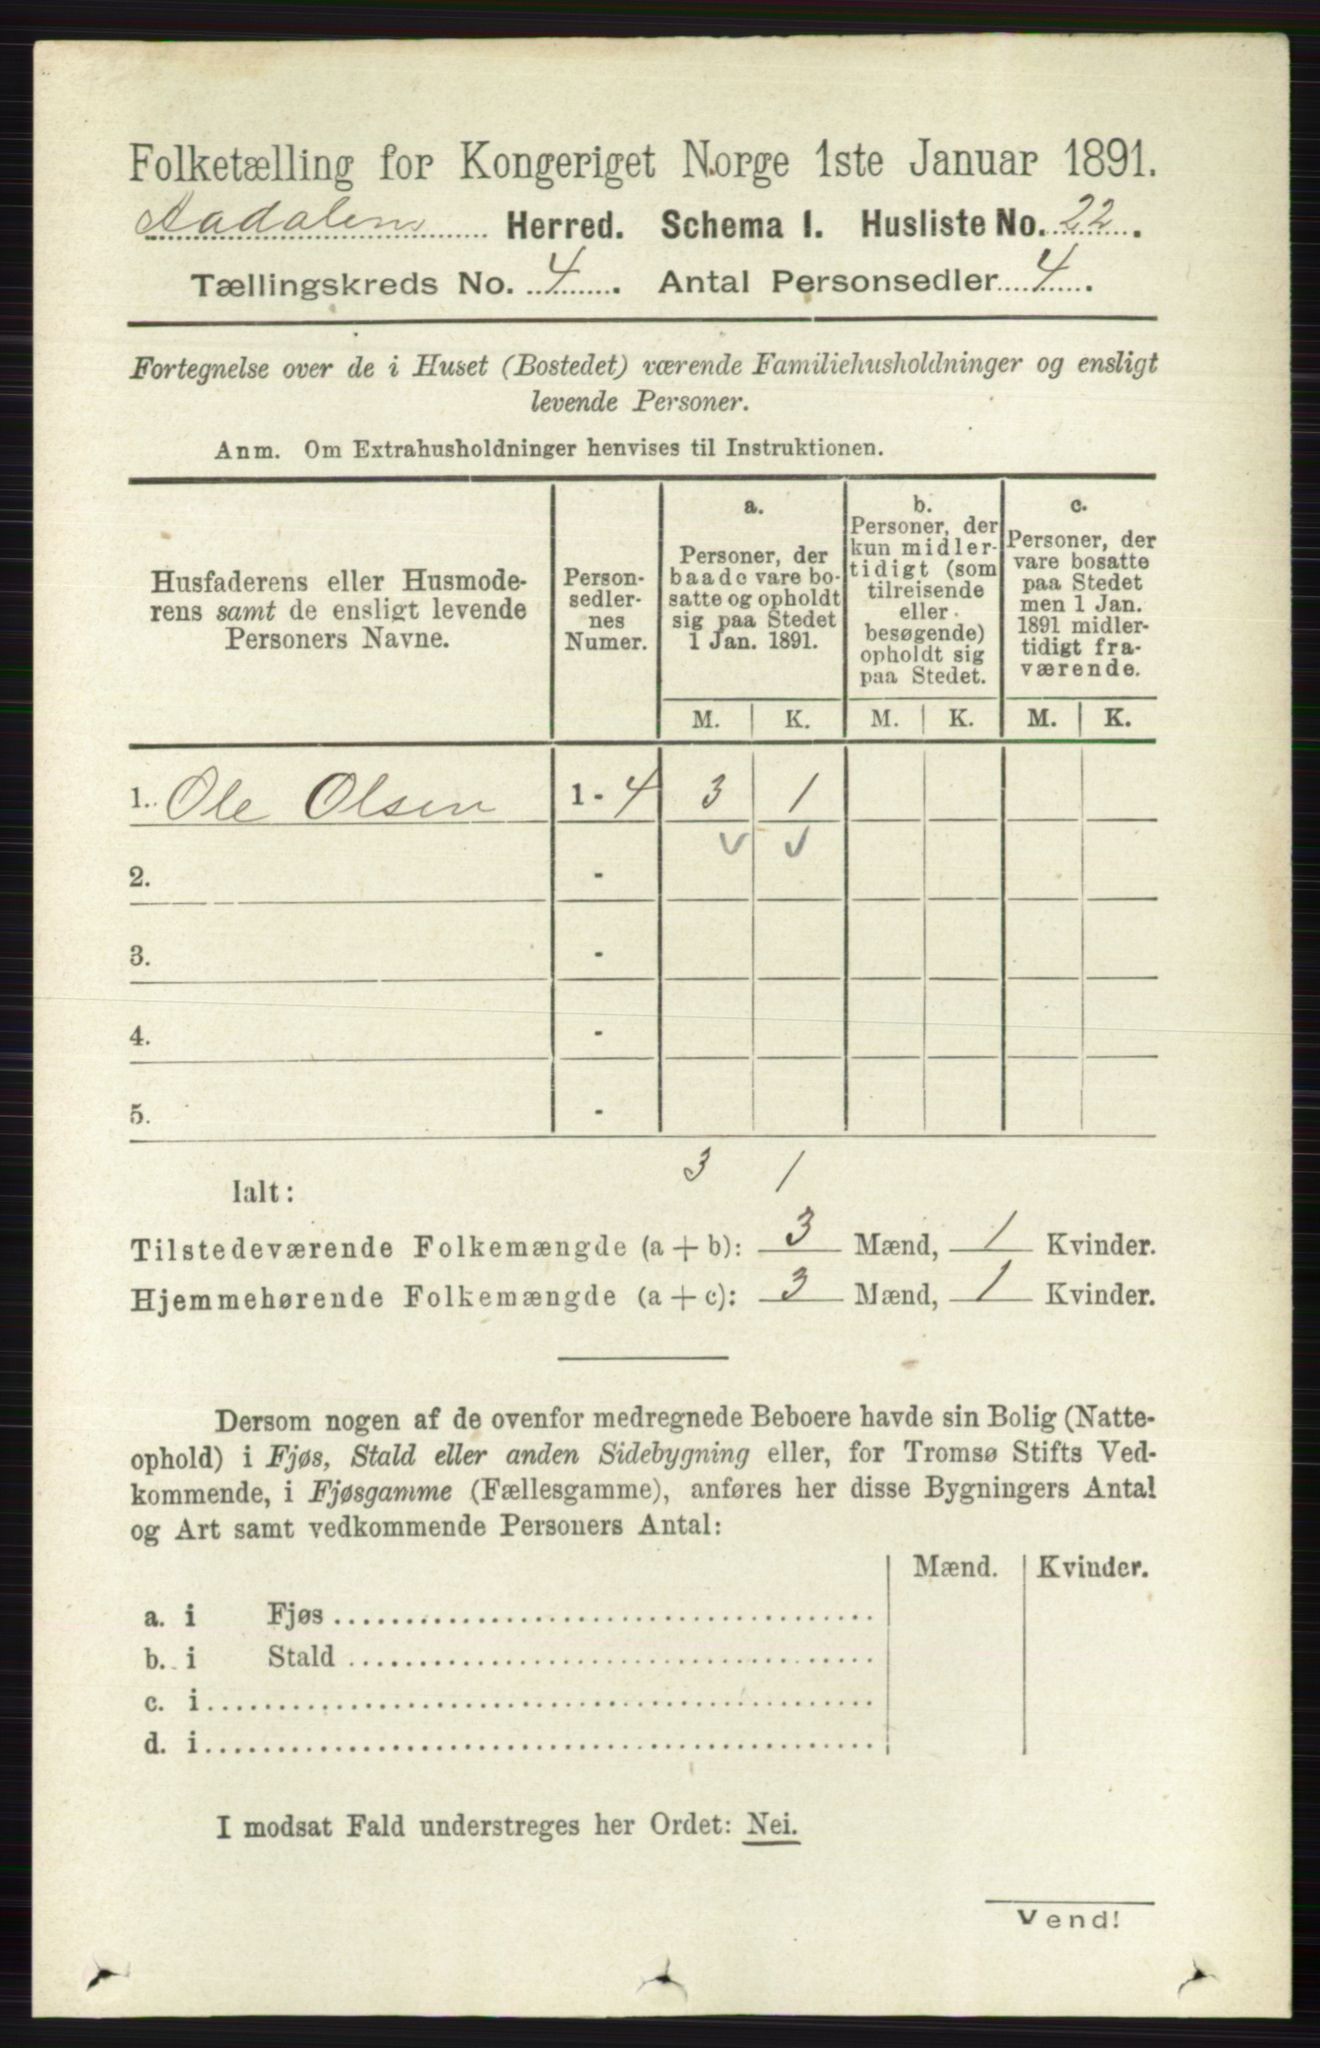 Folketælling for Kongeriget Norge 1ste Januar 1891.
Aadalens Herred. Schema I. Husliste No. 22.
Tællingskreds No. 4. Antal Personsedler 4.
Fortegnelse over de i Huset (Bostedet) værende Familiehusholdninger og ensligt
levende Personer.
Anm. Om Extrahusholdninger henvises til Instruktionen.
Husfaderens eller Husmode-
rens samt de ensligt levende
Personers Navne.
Person-
sedler-
nes
Numer.
a.
Personer, der
baade vare bo-
satte og opholdt
sig paa Stedet
1 Jan. 1891.
b.
Personer, der
kun midler-
tidigt (som
tilreisende
eller
besøgende)
opholdt sig
paa Stedet.
c.
Personer, der
vare bosatte
paa Stedet
men 1 Jan.
1891 midler-
tidigt fra-
værende.
M. K. M. K. M. K.
1. Ole Olsen 1 - 4 3 1
2. -
3. -
4. -
5. -
3 1
Ialt:
Tilstedeværende Folkemængde (a + b): 3 Mænd, 1 Kvinder.
Hjemmehørende Folkemængde (a + c): 3 Mænd, 1 Kvinder.
Dersom nogen af de ovenfor medregnede Beboere havde sin Bolig (Natte-
ophold) i Fjøs, Stald eller anden Sidebygning eller, for Tromsø Stifts Ved-
kommende, i Fjøsgamme (Fællesgamme), anføres her disse Bygningers Antal
og Art samt vedkommende Personers Antal:
Mænd. Kvinder.
a. i Fjøs
b. i Stald
c. i
d. i
I modsat Fald understreges her Ordet: Nei.
Vend!